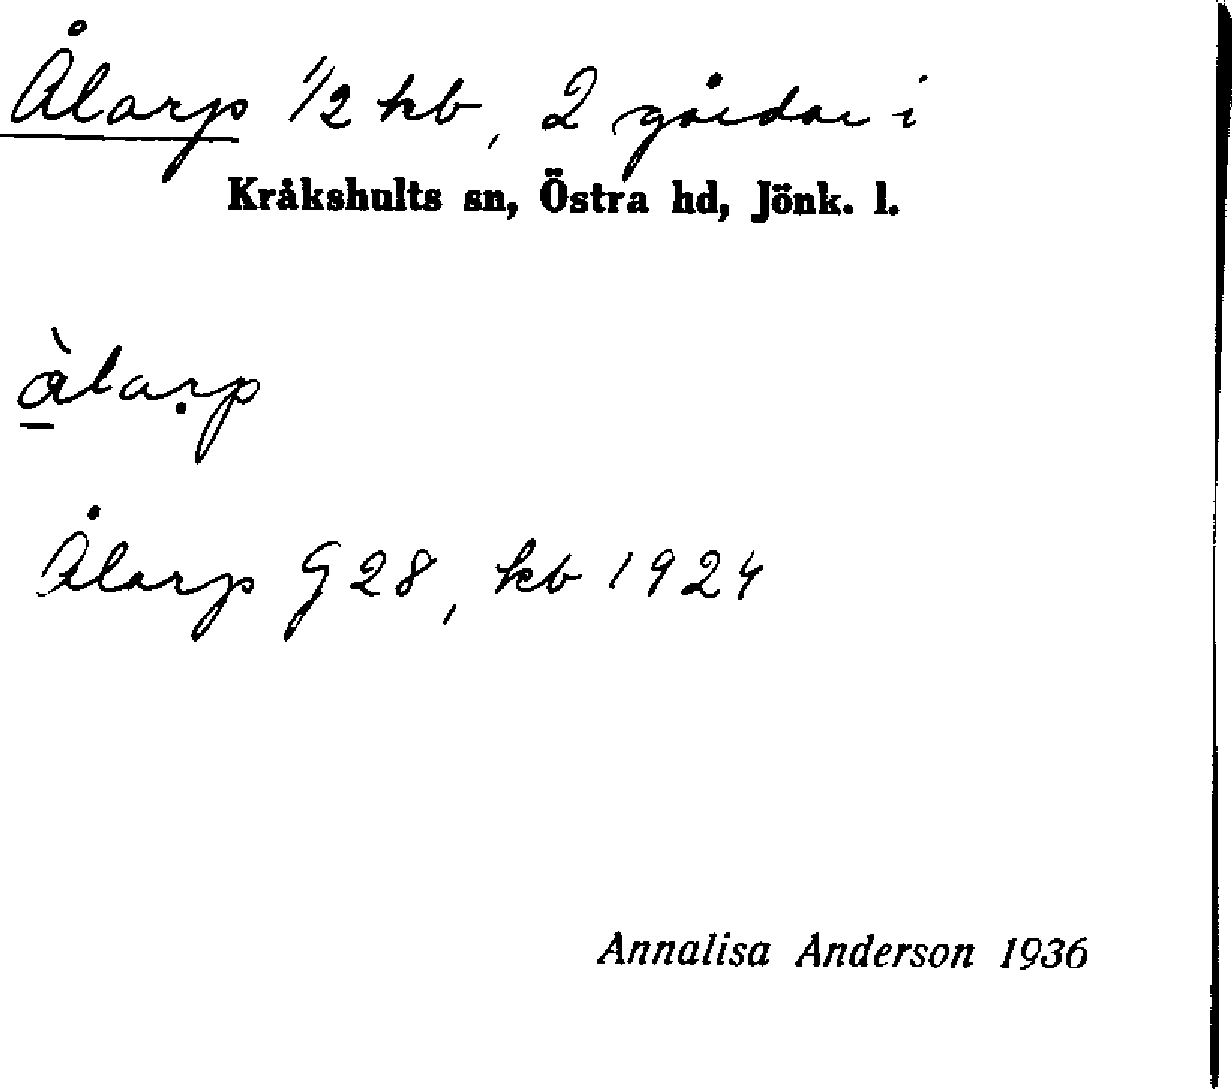 Ålarp 1/2 kb, 2 gårdar i
Kråkshults sn, Östra hd, Jönk. l.
à̱laṛp
Ålarp G28, kb 1924
Annalisa Anderson 1936